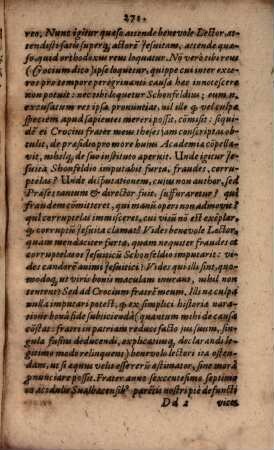 271.
reo. Nunc igitur quæso attende benevole Lector, at-
tendisti satis superq́; actorē Jesuitam, attende quæ-
so, quid orthodoxus reus loquatur. Nō verò ubi reus
(Crocium dico) ipse loquitur, quippe cui inter exte-
ros pro tempore peregrinanti causa hæc innotescere
non potuit: nec ubi loquitur Schonfeldius; eum n.
excusatum res ipsa pronuntiat, nil ille q́ vel culpæ
speciem apud sapientes mereri possit, cōmisit: siqui-
dē ei Crocius frater meus theses jam conscriptas ob-
tulit, de præsidio pro more huius Academia cōpella-
vit, nihilq́; de suo instituto aperuit. Unde igitur Je-
suita Schonfeldio imputabit furta, fraudes, corru-
ptelas? Unde disputationem, cuius non author, sed
Præses tantum & director fuit, suffuraretur? qui
fraudem cōmitteret, qui manū operi non admovet?
qui corruptelas immisceret, cui visū nō est exēplar,
q́ corruptū Jesuita clamat? Vides benevole Lector,
quam mendaciter furta, quam nequiter fraudes &
corruptelas iste Jesuita Schonfeldio imputarit: vi-
des candorē animi Jesuitici: Vides qui illi sint, quo-
modoq́; ut viris bonis maculam inurant, nihil non
tentarent? Sed ad Crocium fratrē meum. Illine culpa
nulla imputari potest, q́ ex simplici historia nar-
ratione bonâ fide subijciendâ (quantum mihi de causa
cōstat: fratri in patriam reduce facto jus suum, sin-
gula fusius deducendi, explicandiq́;, declarandi le-
gitimo modo relinquens) benevolo lectori ita osten-
dam, ut si æquus velis esse rerū æstimator, sine morâ
pronunciare possit. Frater anno sexcentesimo septimo
ex acidulis Sualbacensibꝰ parētis nostri piè defuncti
D d 2 vices